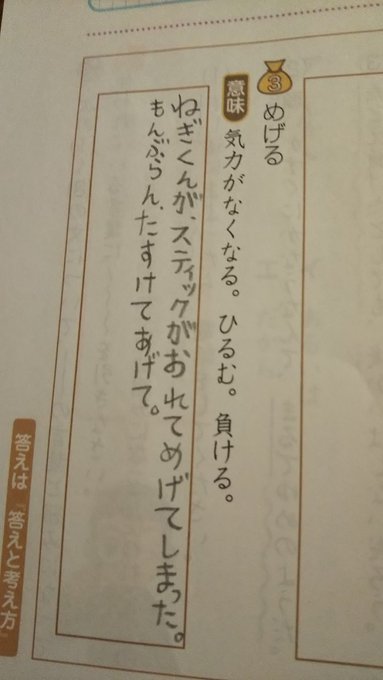 ③ めげる
意味 気力がなくなる。ひるむ。負ける。
ねぎくんが、スティックがおれてめげてしまった。
もんぶらん、たすけてあげて。
答えは『答えと考え方』